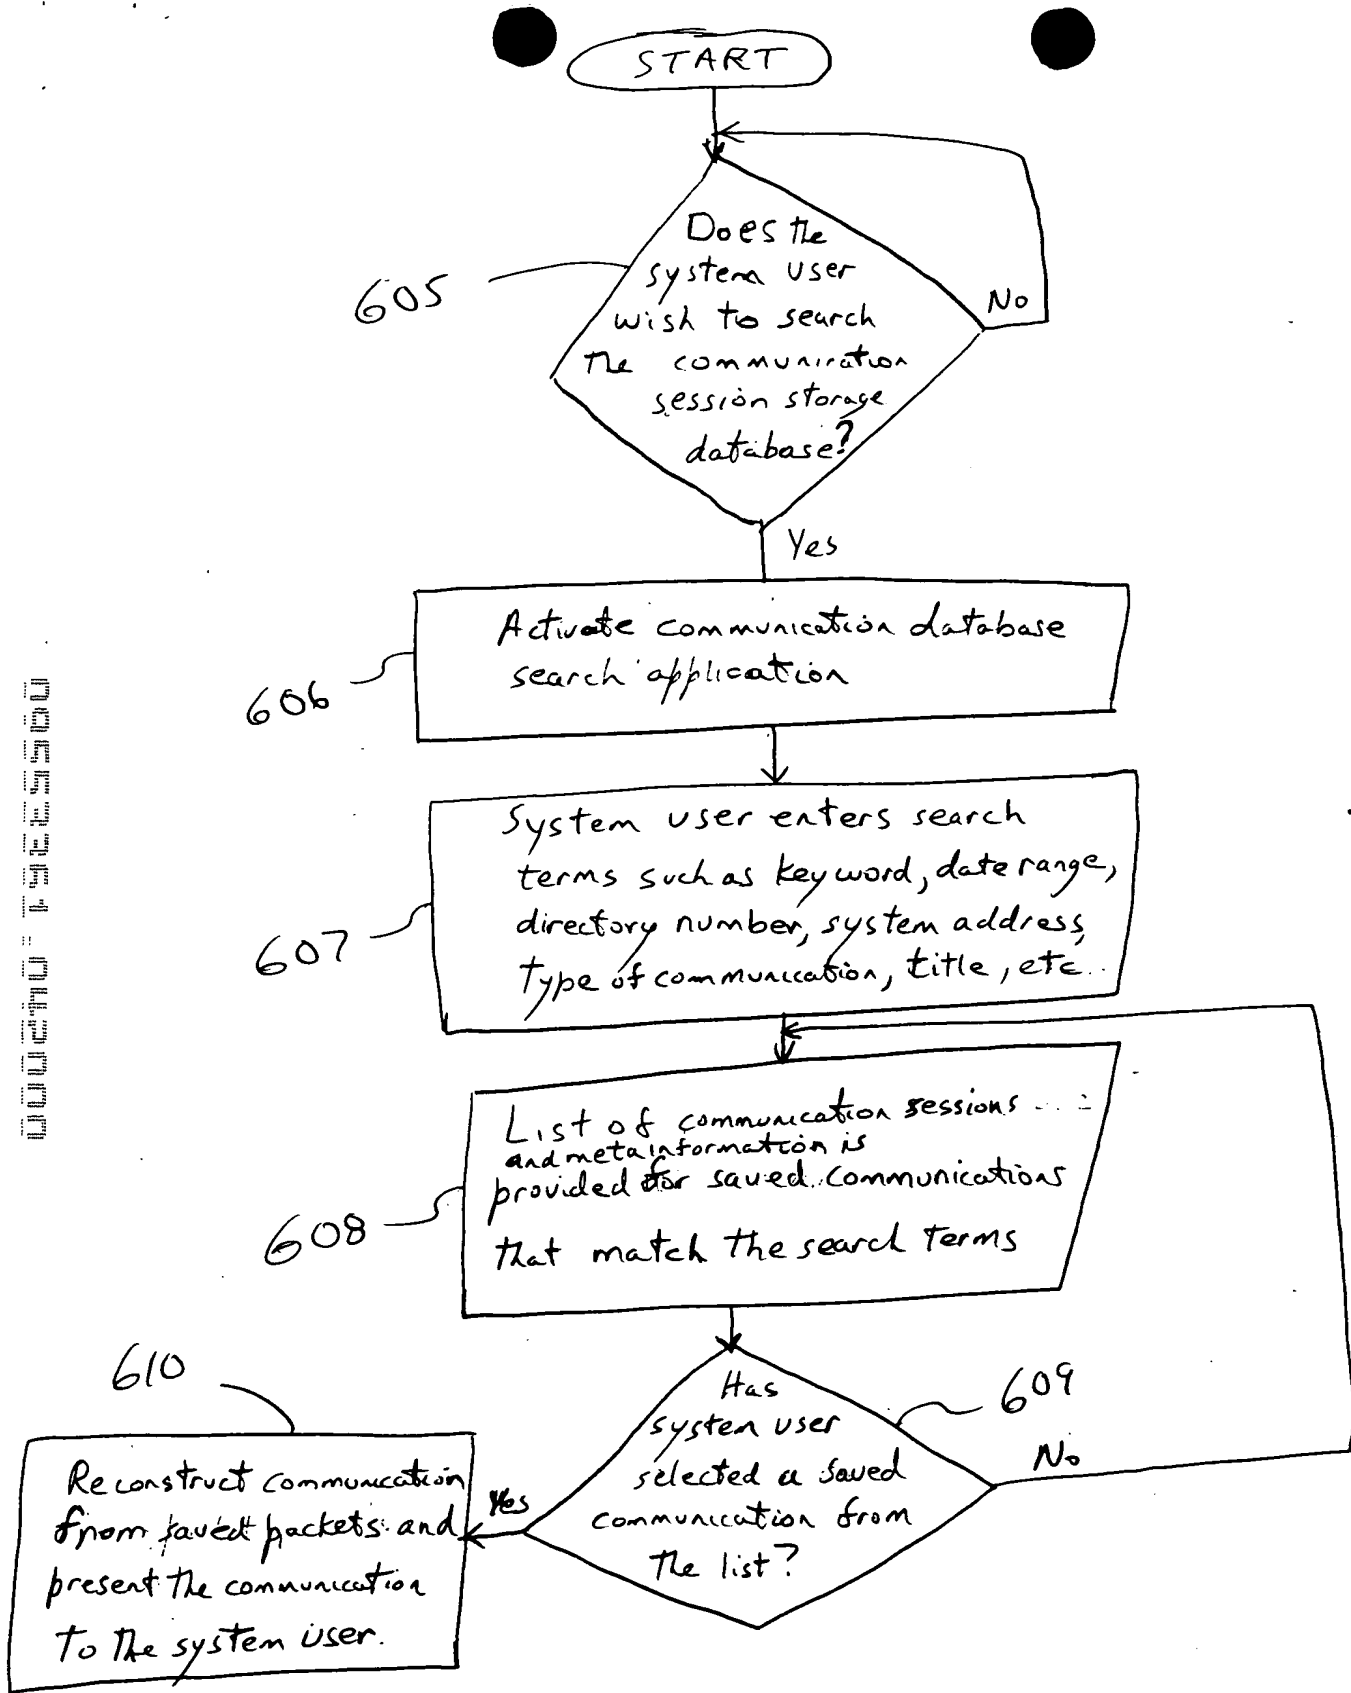 START
Does the
system user
wish to search
the communication
session storage
database?
No
605
Yes
Activate communication database
search application
606
System user enters search
terms such as keyword, date range,
directory number, system address,
type of communication, title, etc..
607
List of communication sessions
and meta information is
provided for saved communications
that match the search terms
608
Has
system user
selected a saved
communication from
the list?
609
No
Yes
610
Reconstruct communication
from saved packets and
present the communication
to the system user.